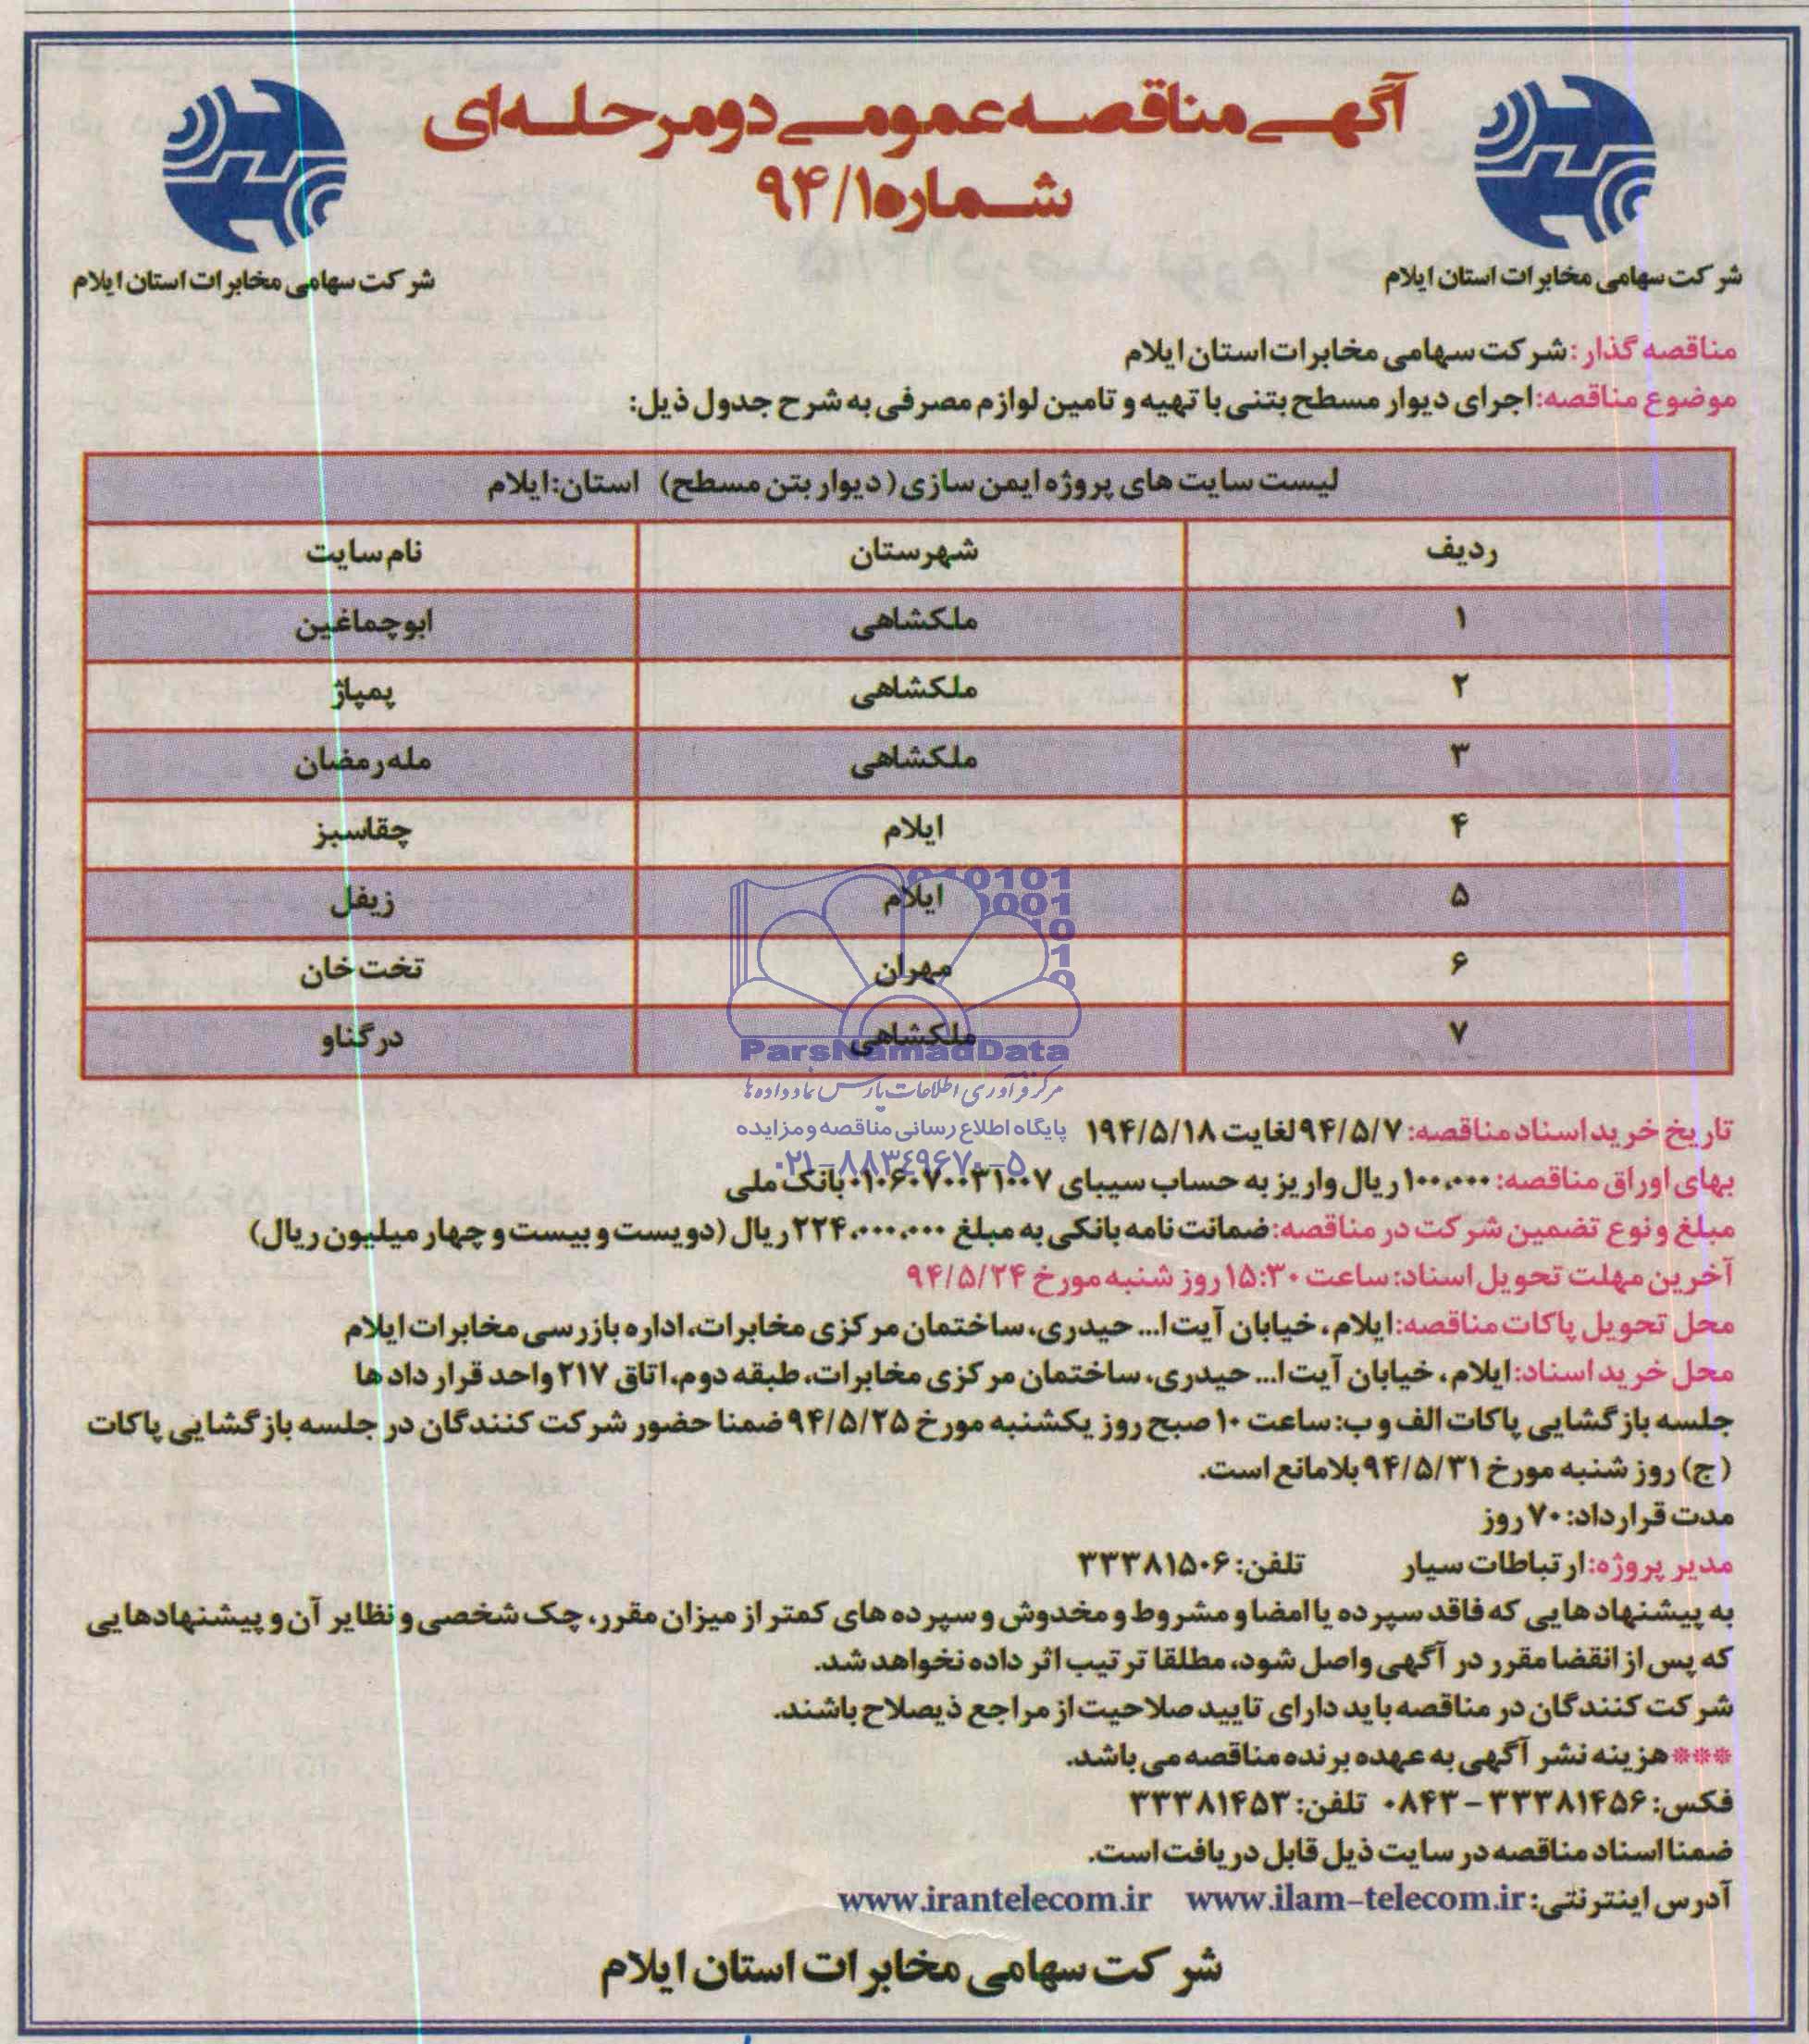 آگهی مناقصه عمومی دو مرحله‌ای
شماره ۹۴/۱
شرکت سهامی مخابرات استان ایلام
شرکت سهامی مخابرات استان ایلام
مناقصه گذار: شرکت سهامی مخابرات استان ایلام
موضوع مناقصه: اجرای دیوار مسطح بتنی با تهیه و تامین لوازم مصرفی به شرح جدول ذیل:
لیست سایت های پروژه ایمن سازی (دیوار بتن مسطح) استان: ایلام
ردیف شهرستان نام سایت
۱ ملکشاهی ابوچماغین
۲ ملکشاهی پمپاژ
۳ ملکشاهی مله رمضان
۴ ایلام چقاسبز
۵ ایلام زیفل
۶ مهران تخت خان
۷ ملکشاهی درگناو
ParsNamadData
مرکز فرآوری اطلاعات پارس نماد داده ها
پایگاه اطلاع رسانی مناقصه و مزایده
۰۲۱-۸۸۳۴۹۶۷۰-۵
تاریخ خرید اسناد مناقصه: ۹۴/۵/۷ لغایت ۱۹۴/۵/۱۸
بهای اوراق مناقصه: ۱۰۰،۰۰۰ ریال واریز به حساب سیبای ۰۱۰۶۰۷۰۰۳۱۰۰۷ بانک ملی
مبلغ و نوع تضمین شرکت در مناقصه: ضمانت نامه بانکی به مبلغ ۲۲۴،۰۰۰،۰۰۰ ریال (دویست و بیست و چهار میلیون ریال)
آخرین مهلت تحویل اسناد: ساعت ۱۵:۳۰ روز شنبه مورخ ۹۴/۵/۲۴
محل تحویل پاکات مناقصه: ایلام، خیابان آیت ا... حیدری، ساختمان مرکزی مخابرات، اداره بازرسی مخابرات ایلام
محل خرید اسناد: ایلام، خیابان آیت ا... حیدری، ساختمان مرکزی مخابرات، طبقه دوم، اتاق ۲۱۷ واحد قرار دادها
جلسه بازگشایی پاکات الف و ب: ساعت ۱۰ صبح روز یکشنبه مورخ ۹۴/۵/۲۵ ضمنا حضور شرکت کنندگان در جلسه بازگشایی پاکات
(ج) روز شنبه مورخ ۹۴/۵/۳۱ بلامانع است.
مدت قرارداد: ۷۰ روز
مدیر پروژه: ارتباطات سیار تلفن: ۳۳۳۸۱۵۰۶
به پیشنهادهایی که فاقد سپرده یا امضا و مشروط و مخدوش و سپرده های کمتر از میزان مقرر، چک شخصی و نظایر آن و پیشنهادهایی
که پس از انقضا مقرر در آگهی واصل شود، مطلقا ترتیب اثر داده نخواهد شد.
شرکت کنندگان در مناقصه باید دارای تایید صلاحیت از مراجع ذیصلاح باشند.
*** هزینه نشر آگهی به عهده برنده مناقصه می باشد.
فکس: ۳۳۳۸۱۴۵۶ - ۰۸۴۳ تلفن: ۳۳۳۸۱۴۵۳
ضمنا اسناد مناقصه در سایت ذیل قابل دریافت است.
آدرس اینترنتی: www.ilam-telecom.ir www.irantelecom.ir
شرکت سهامی مخابرات استان ایلام